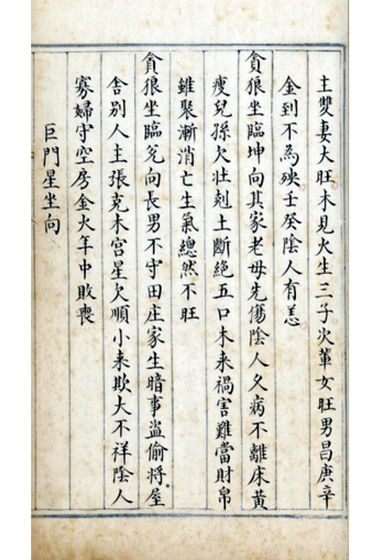 主雙妻大旺木見火生三子次輩女旺男昌庚辛
金到不為殃壬癸陰人有恙
貪狼坐臨坤向其家老母先傷陰人久病不離床黃
瘦兒孫欠壯剋土斷絕五口木来禍害難當財帛
雖聚漸消亡生氣總然不旺
貪狼坐臨兌向長男不守田庄家生暗事盜偷將屋
舍别人主張克木宮星欠順小来欺大不祥陰人
寡婦守空房金火年中敗喪
巨門星坐向